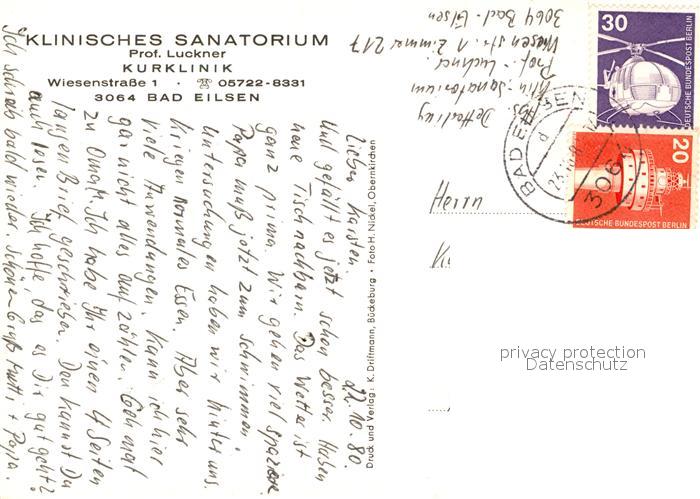 KLINISCHES SANATORIUM
Prof. Luckner
KURKLINIK
Wiesenstraße 1 · ☏ 05722-8331
3064 BAD EILSEN
22.10.80.
Lieber Karsten.
Uns gefällt es jetzt schon besser. Haben
neue Tischnachbarn. Das Wetter ist
ganz prima. Wir gehen viel spazieren.
Papa muß jetzt zum schwimmen.
Untersuchungen haben wir hinter uns.
Kriegen normales Essen. Aber sehr
viele Anwendungen. Kann ich hier
gar nicht alles aufzählen. Geh mal
zu Oma M. Ich habe Ihr einen 4 Seiten
langen Brief geschrieben. Den kannst Du
auch lesen. Ich hoffe das es Dir gut geht?
Ich schreib bald wieder. Schönen Gruß Mutti + Papa.
Druck und Verlag: K. Driftmann, Bückeburg · Foto H. Nickel, Obernkirchen
Klin. Sanatorium
Prof. Luckner
Wiesenstr. 1 Zimmer 217
3064 Bad-Eilsen
30
DEUTSCHE BUNDESPOST BERLIN
20
DEUTSCHE BUNDESPOST BERLIN
3064 BAD EILSEN
d
Herrn
privacy protection
Datenschutz